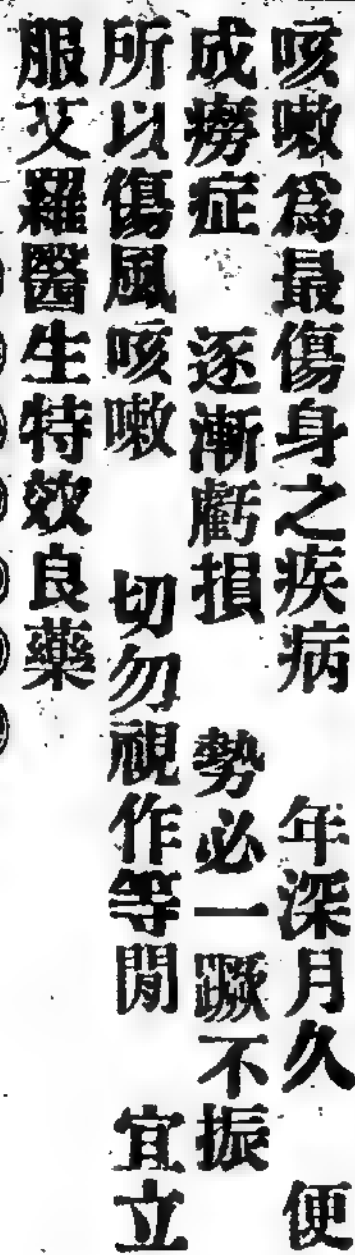 咳嗽爲最傷身之疾病 年深月久 便
成癆症 逐漸虧損 勢必一蹶不振
所以傷風咳嗽 切勿視作等閒 宜立
服艾羅醫生特效良藥